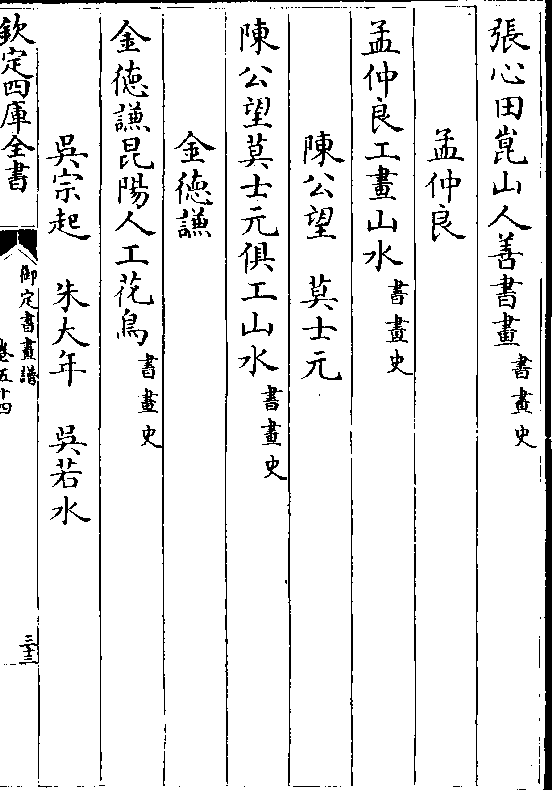 張心田崑山人善書畫書畫史
孟仲良
孟仲良工畫山水書畫史
陳公望　莫士元
陳公望莫士元俱工山水書畫史
金德謙
金德謙昆陽人工花鳥書畫史
吳宗起　朱大年　吳若水
欽定四庫全書
御定書畫譜
卷五十四
三十三